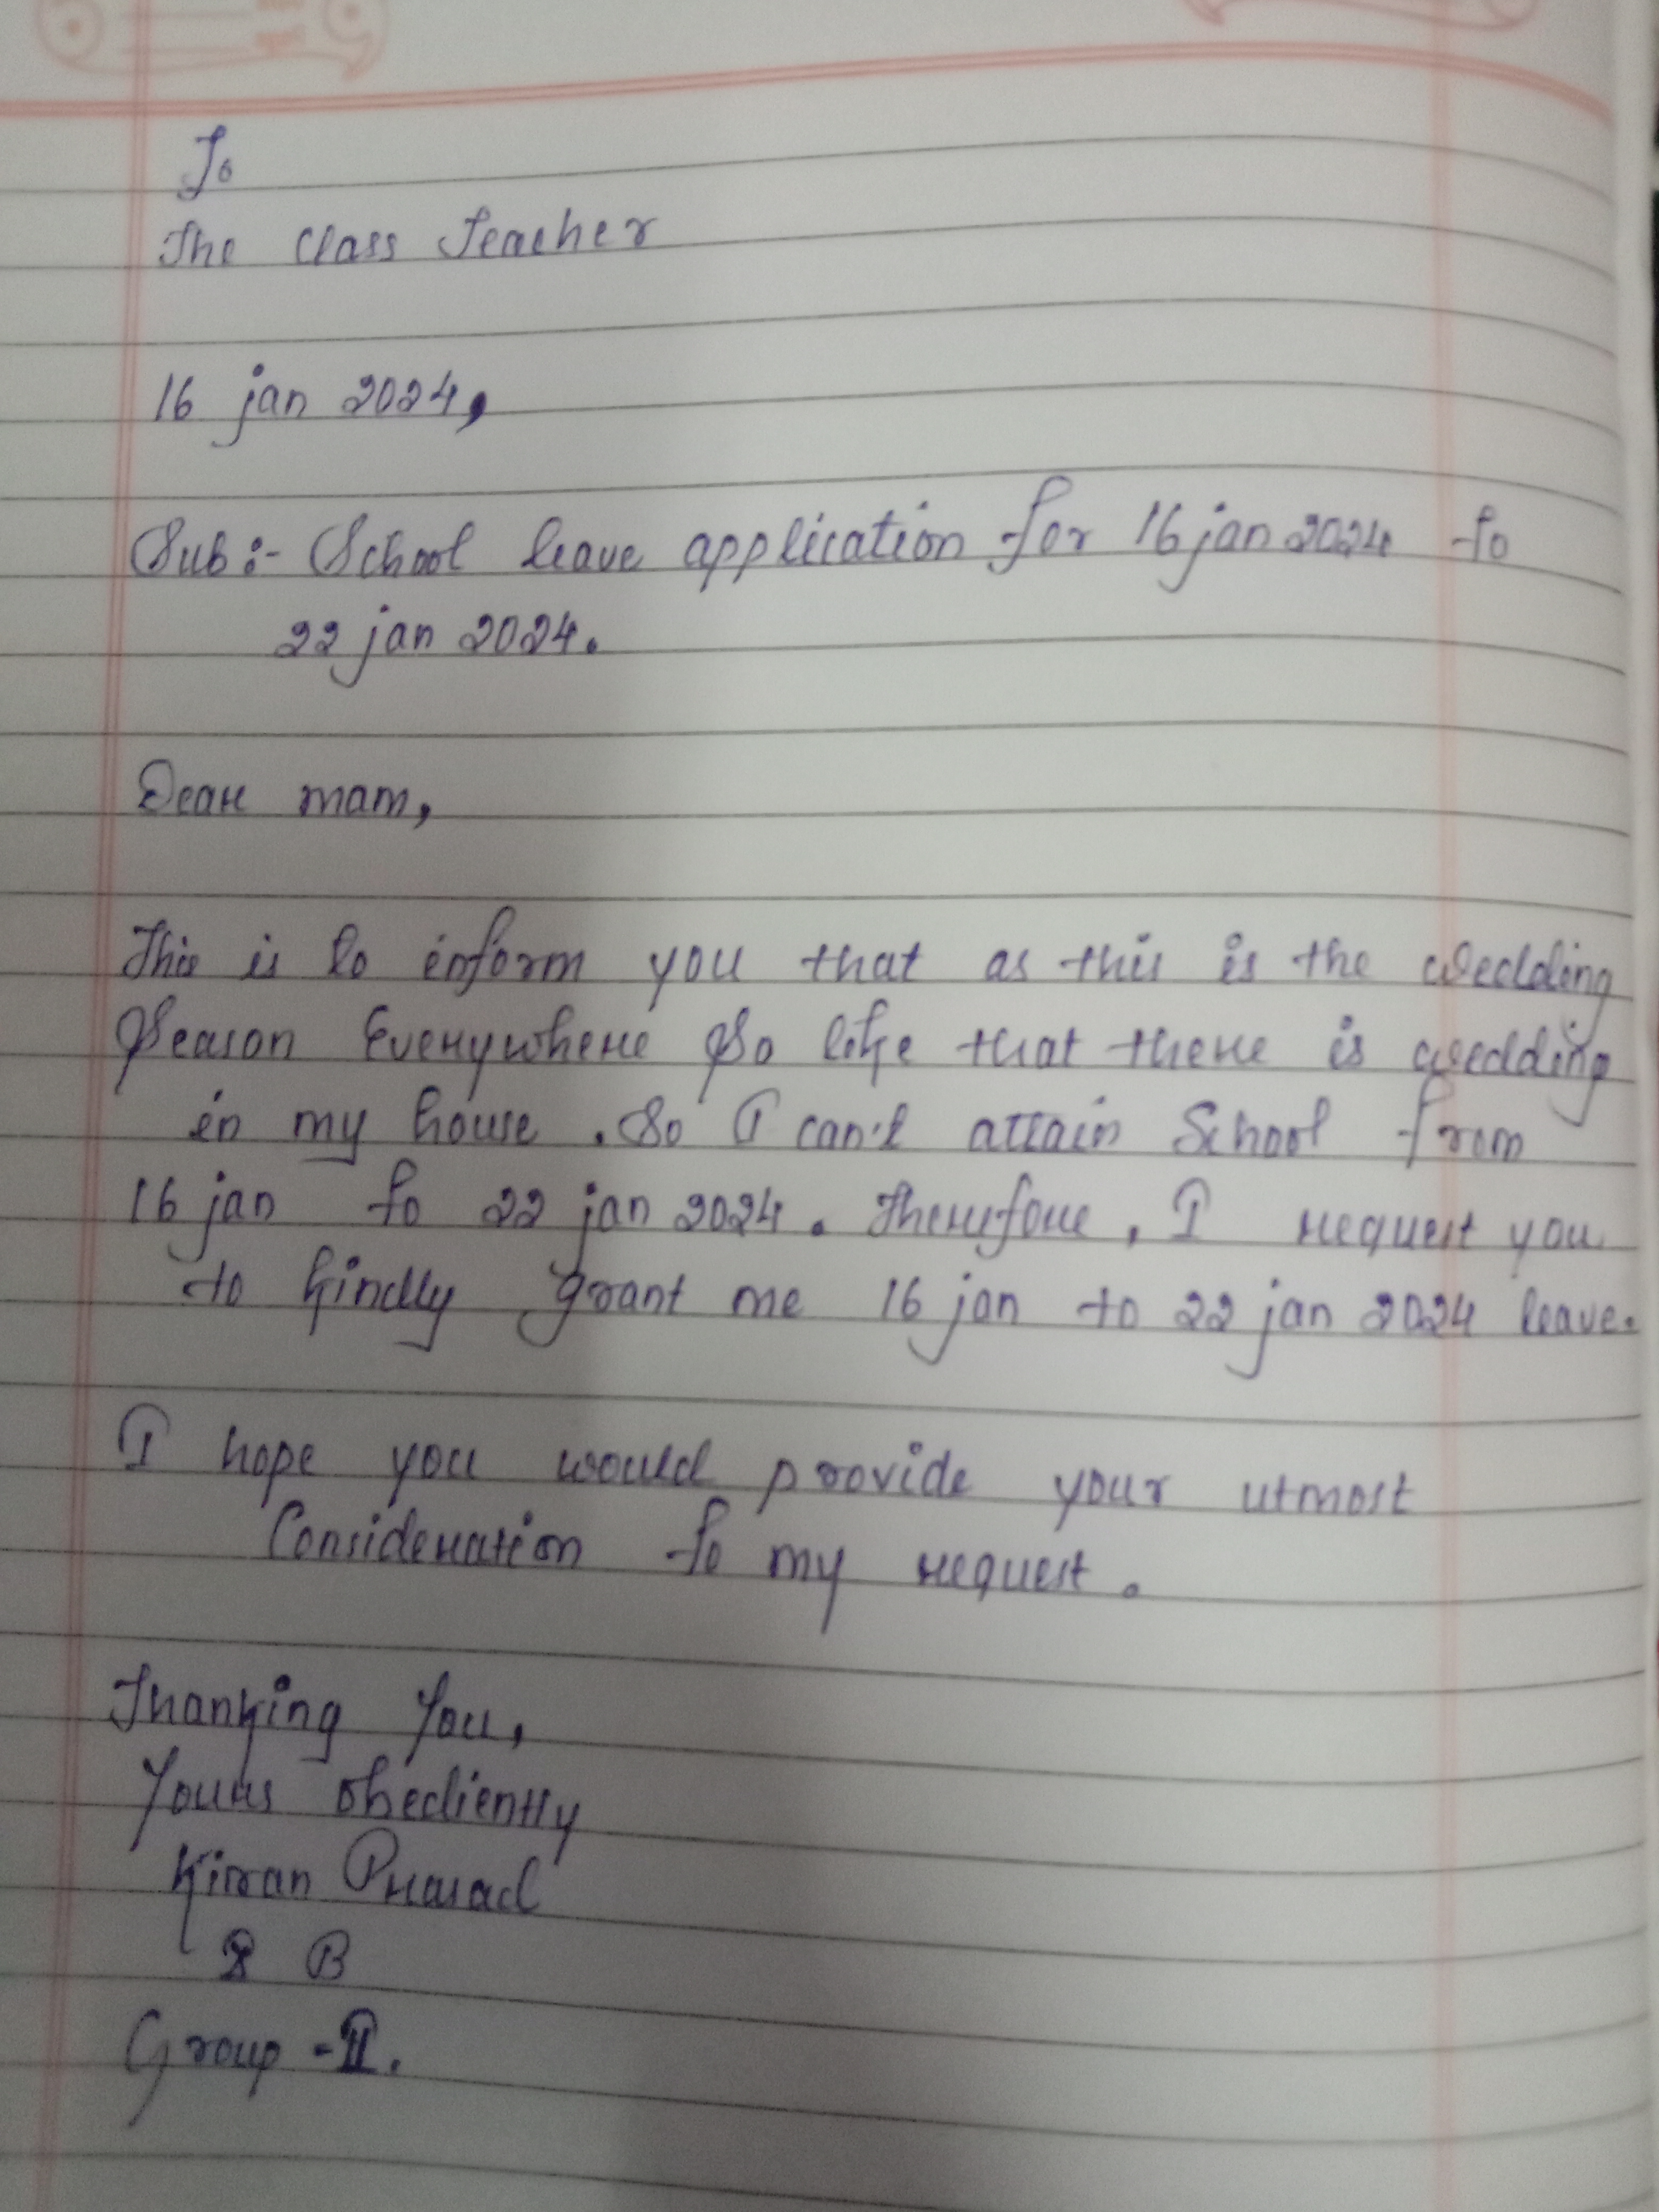 To
The Class Teacher
16 jan 2024,
Sub:- School leave application for 16 jan 2024 to
22 jan 2024.
Dear mam,
This is to inform you that as this is the wedding
Season Everywhere So like that there is wedding
in my house . So I can't attain School from
16 jan to 22 jan 2024. Therefore, I request you
to kindly grant me 16 jan to 22 jan 2024 leave.
I hope you would provide your utmost
Consideration to my request.
Thanking You,
Yours obediently
Kiran Prasad
B
Group - II.